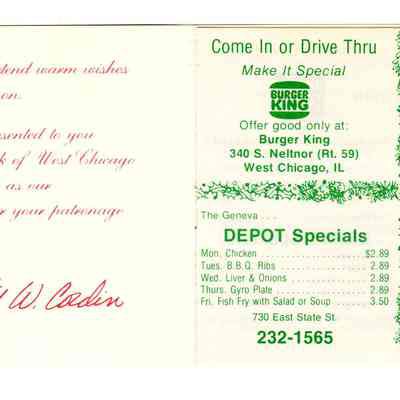 tend warm wishes
on.
sented to you
k of West Chicago
as our
r your patronage
W. Cordin
Come In or Drive Thru
Make It Special
BURGER
KING
Offer good only at:
Burger King
340 S. Neltnor (Rt. 59)
West Chicago, IL
The Geneva . . .
DEPOT Specials
Mon. Chicken . . . . . . . . . . . . . . . . . . . . . . $2.89
Tues. B.B.Q. Ribs . . . . . . . . . . . . . . . . . . . 2.89
Wed. Liver & Onions . . . . . . . . . . . . . . . . . 2.89
Thurs. Gyro Plate . . . . . . . . . . . . . . . . . . . 2.89
Fri. Fish Fry with Salad or Soup . . . . . . . 3.50
730 East State St.
232-1565